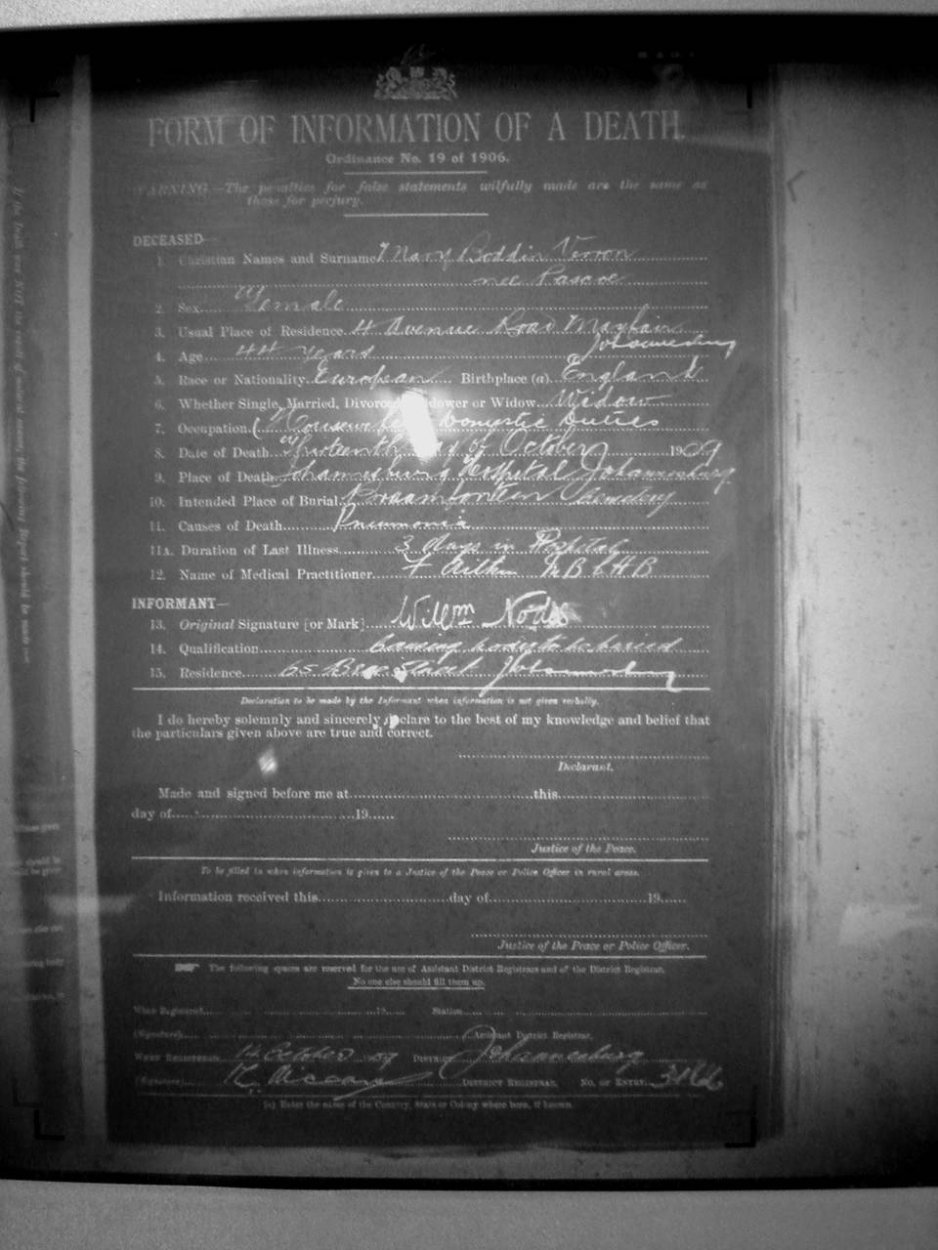 FORM OF INFORMATION OF A DEATH.
Ordinance No. 19 of 1906.
WARNING.—The penalties for false statements wilfully made are the same as
those for perjury.
DECEASED—
1. Christian Names and Surname Mary Boddin Verron
nee Pascoe
2. Sex Female
3. Usual Place of Residence 4 Avenue Road Mayfair
Johannesburg
4. Age 44 years
5. Race or Nationality European Birthplace (a) England
6. Whether Single, Married, Divorced, Widower or Widow Widow
7. Occupation Domestic Duties
8. Date of Death Thirteenth day of October 1909
9. Place of Death Johannesburg Hospital Johannesburg
10. Intended Place of Burial Braamfontein Cemetery
11. Causes of Death Pneumonia
11A. Duration of Last Illness 3 days in Hospital
12. Name of Medical Practitioner F Aitken MB
INFORMANT—
13. Original Signature [or Mark] Willm Nodes
14. Qualification Causing body to be buried
15. Residence 65 Bree Street Johannesburg
Declaration to be made by the Informant when information is not given verbally.
I do hereby solemnly and sincerely declare to the best of my knowledge and belief that
the particulars given above are true and correct.
Declarant.
Made and signed before me at this
day of 19
Justice of the Peace.
To be filled in when information is given to a Justice of the Peace or Police Officer in rural areas.
Information received this day of 19
Justice of the Peace or Police Officer.
The following spaces are reserved for the use of Assistant District Registrars and of the District Registrar.
No one else should fill them up.
When Registered 19 Station
(Signature) Assistant District Registrar.
When Registered 14 October 1909 District Johannesburg
(Signature) District Registrar. No. of Entry
(a) Enter the name of the Country, State or Colony where born, if known.